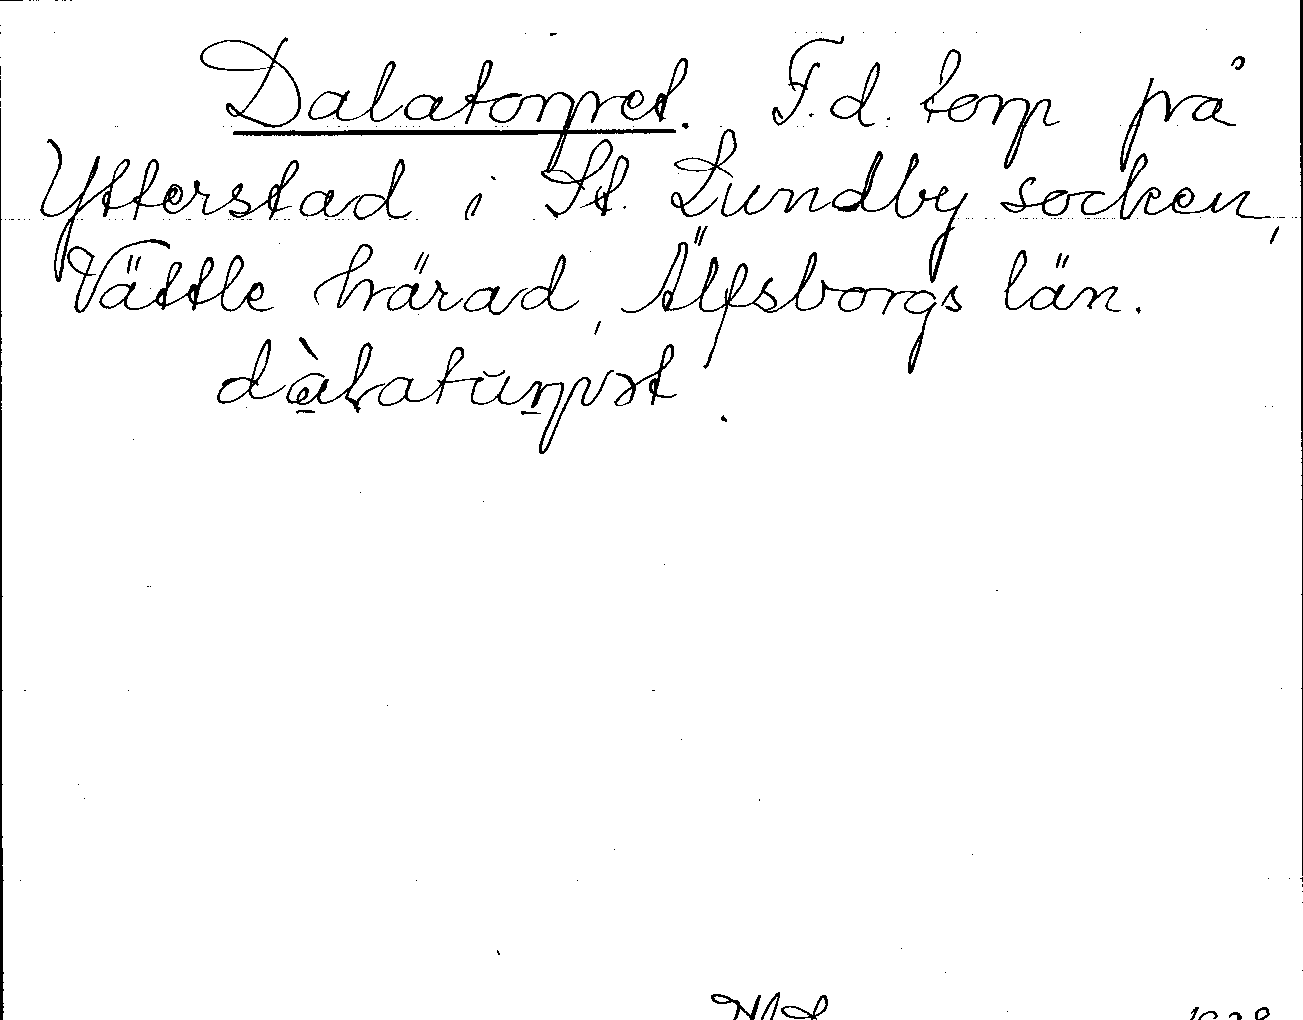 Dalatorpet. F.d. torp på
Ytterstad i St. Lundby socken,
Vättle härad, Älfsborgs län.